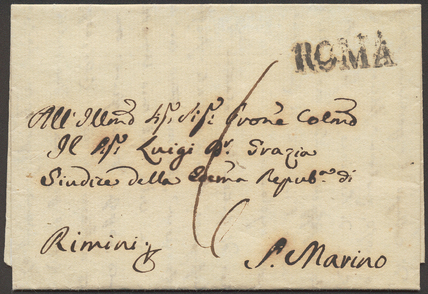 ROMA
All'Illmo Sigr. Sigr. Prone Colmo
Il Sigr. Luigi Dr. Grazia
Giudice della Serma Repubca. di
Rimini S. Marino